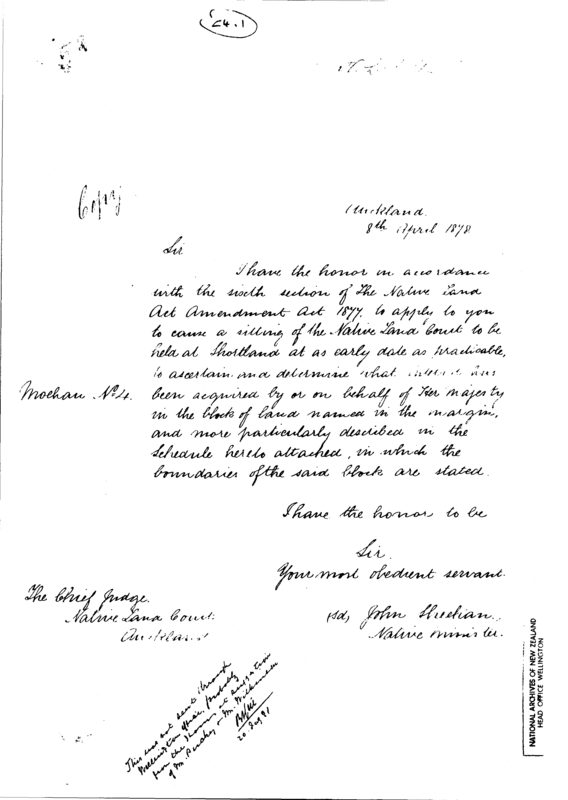 C4.1
Copy
Auckland.
8th April 1878
Sir
I have the honor in accordance
with the sixth section of The Native Land
Act Amendment Act 1877, to apply to you
to cause a sitting of the Native Land Court to be
held at Shortland at as early date as practicable,
to ascertain and determine what interest has
Moehau No 4. been acquired by or on behalf of Her Majesty
in the block of land named in the margin,
and more particularly described in the
Schedule hereto attached, in which the
boundaries of the said block are stated.
I have the honor to be
Sir.
Your most obedient servant.
The Chief Judge.
Native Land Court
Auckland
(sd) John Sheehan,
Native Minister.
This was not sent through
Wellington office, probably
from the Thames at
of Mr. Mr. Wilkinson
20. Aug 91
NATIONAL ARCHIVES OF NEW ZEALAND
HEAD OFFICE WELLINGTON